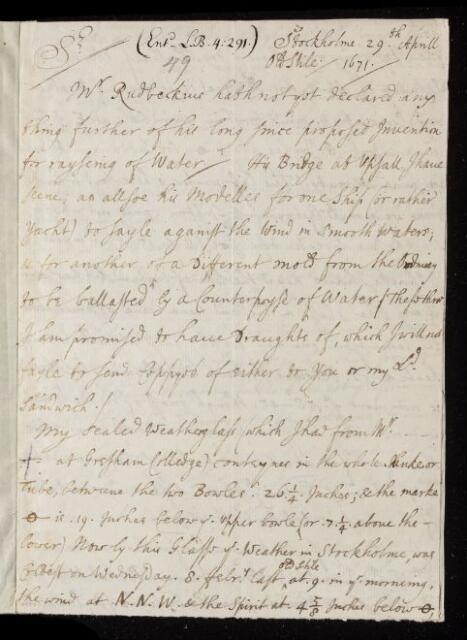 Sr (Entd. L.B. 4:291.) Stockholme 29th Aprill
49 Old Stile: 1671.
Mr. Rudbeckius hath not yet declared any
thing further of his long since proposed Invention
for rayseing of Water. His Bridge at Upsall, I have
seene; as allsoe his Modelles for one Ship (or rather
Yacht) to sayle against the Wind in Smooth Waters;
& for another of a Different from the Ordinary
to be ballasted by a Counterpoyse of Water
I am promised to have Draughts of, which I will not
fayle to send Coppyes of either to You or my Ld.
Sandwich.
My sealed Weatherglass, which I had from Mr.
at Gresham Colledge) conteynes in the whole or
Tube, betweene the two Bowles 26 1/4 Inches; & the marke
0 is 19. Inches below ye. upper bowle (or 7 1/4 above the
lower) Now by this Glasse ye. Weather in Stockholme, was
Coldest on Wednesday. 8. Febry last, old Stile at 9. in ye. morneing,
the wind at N. N. W. & the Spirit at 4 5/8 Inches below 0,